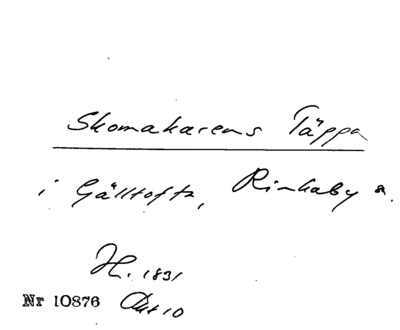 Skomakarens Täppa
i Gälltofta, Rinkaby s.
H. 1831
Nr 10876 Akt 10